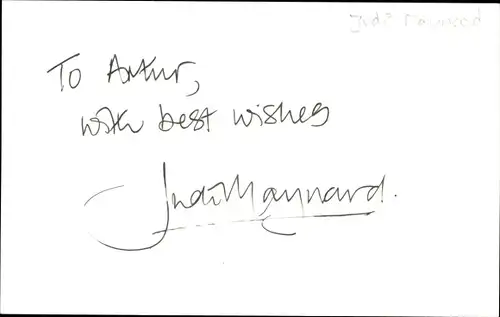 Judi Maynard
To Artur,
with best wishes
Judi Maynard.